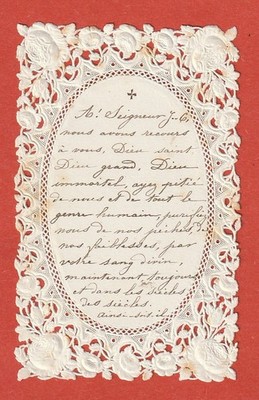 ✝
A! Seigneur J-C,
nous avons recours
à vous, Dieu saint
Dieu grand, Dieu
immortel, ayez pitié
de nous et de tout le
genre humain, purifiez
nous de nos péchés, de
nos faiblesses, par
votre sang divin,
maintenant, toujours
et dans les siècles
des siècles.
Ainsi-soit-il.